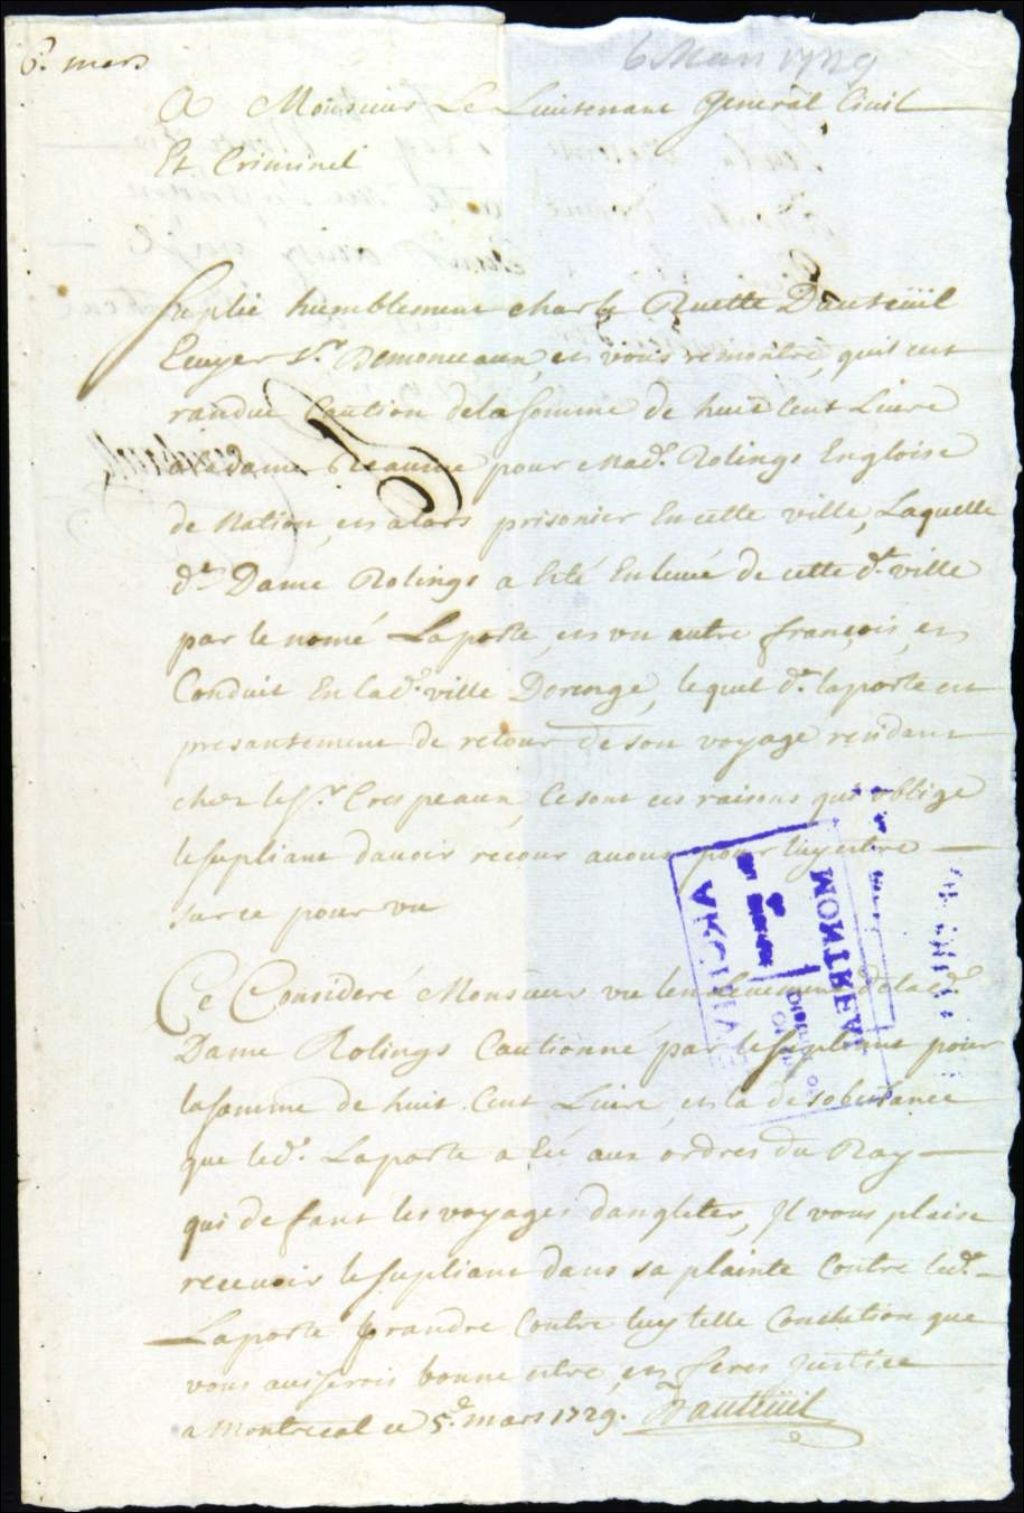 6e. mars
6 Mars 1729
A Monsieur Le Lieutenant General Civil
Et Criminel
Suplie humblement charle Ruette Dauteüil
Ecuyer Sr. Demonceaux, et vous remontre, quil est
randue Caution dela somme de huit Cent Livre
a la dame pour Mad.e Rolings Engloise
de Nation, et alors prisonier En cette ville, Laquelle
de. Dame Rolings a Esté Enlevé de cette de. ville
par le nomé Laporte, et un autre françois, et
Conduit En lade. ville Dorenge, lequel d.t laporte est
presantement de retour de son voyage residant
chez le Sr. Crespeaux, Ce sont ces raisons qui oblige
le supliant davoir recour avous pour luy estre
sur ce pour vu
Ce Consideré Monsieur vu lenlevement delade.
Dame Rolings Cautionné par le supliant pour
la somme de huit Cent Livre, et la desobeisance
que led. Laporte a Eü aux ordres du Roy
qui defant les voyages dangleter, Il vous plaise
recevoir le supliant dans sa plainte Contre led.t
Laporte prandre Contre luy telle Conclution que
vous aviserois bonne estre, et feres justice
a Montreal ce 5e. mars 1729. Dauteüil
ARCHIVES
MONTREAL